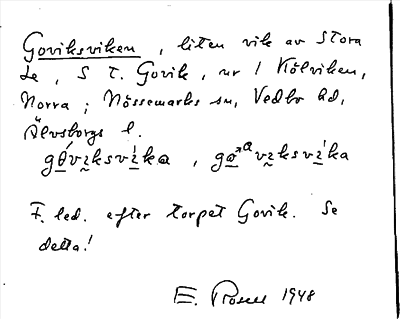 Goviksviken, liten vik av Stora
Le, S t. Govik, nr 1 Kölviken,
Norra; Nössemarks sn, Vedbo hd,
Älvsborgs l.
F. led. efter torpet Govik. Se
detta!
E. 1948